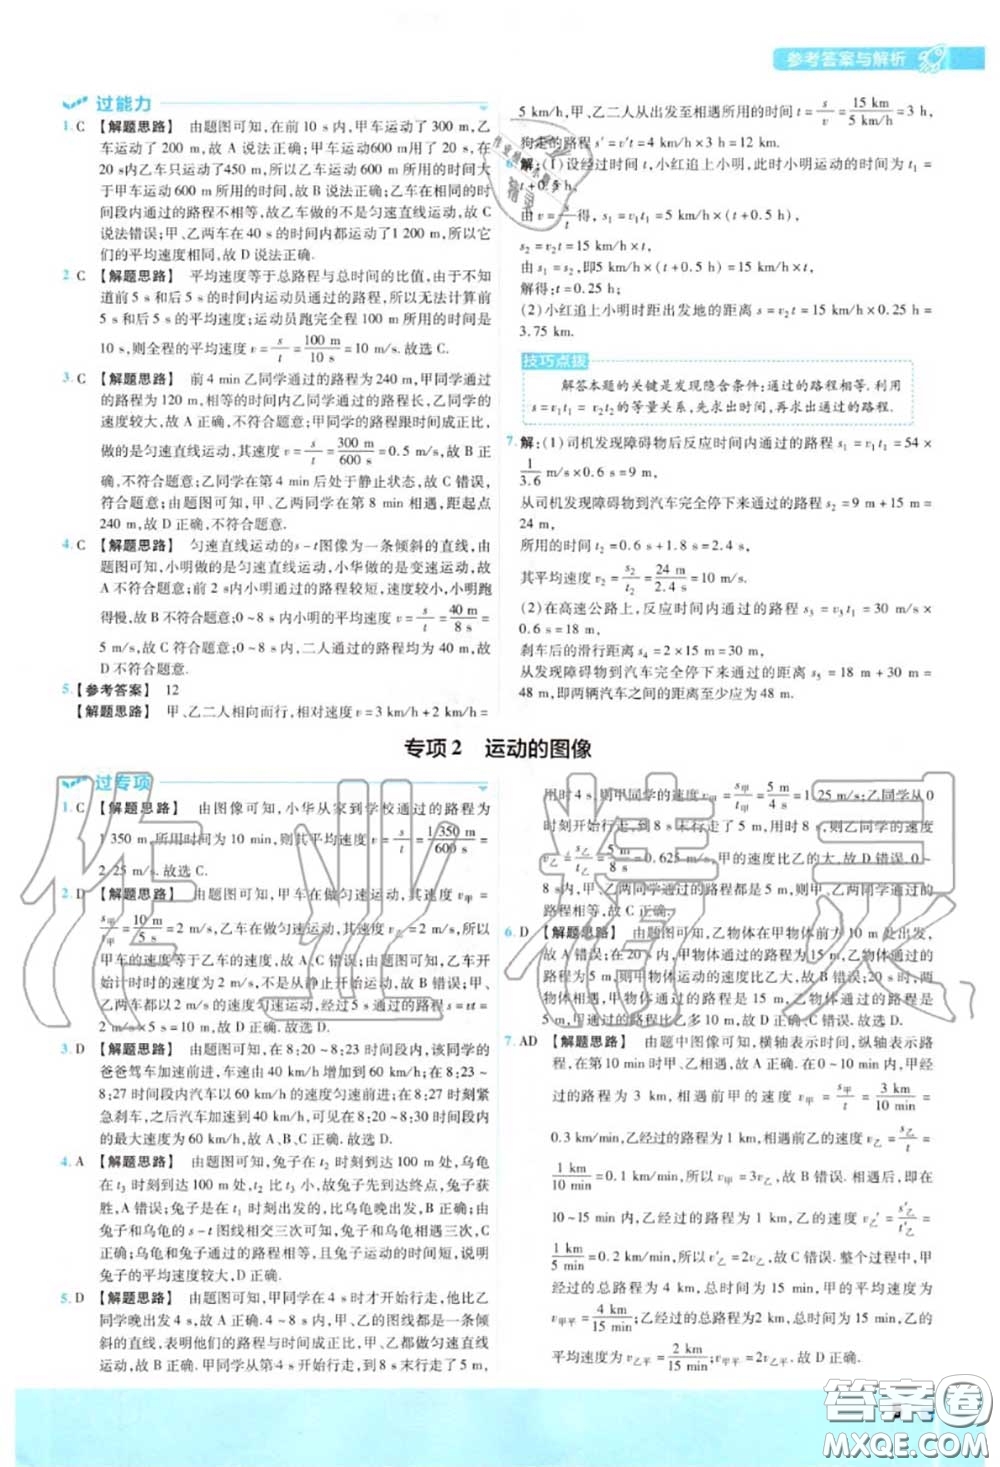 参考答案与解析
过能力
1. C 【解题思路】 由题图可知,在前 10 s 内,甲车运动了 300 m,乙
车运动了 200 m,故 A 说法正确;甲车运动 600 m 用了 20 s,在
20 s内乙车只运动了450 m,所以乙车运动 600 m 所用的时间大
于甲车运动 600 m 所用的时间,故 B 说法正确;乙车在相同的时
间段内通过的路程不相等,故乙车做的不是匀速直线运动,故 C
说法错误;甲、乙两车在 40 s 的时间内都运动了 1 200 m,所以它
们的平均速度相同,故 D 说法正确.
2. C 【解题思路】 平均速度等于总路程与总时间的比值,由于不知
道前 5 s 和后 5 s 的时间内运动员通过的路程,所以无法计算前
5 s 和后 5 s 的平均速度;运动员跑完全程 100 m 所用的时间是
10 s,则全程的平均速度 v = s/t = 100 m/10 s = 10 m/s. 故选 C.
3. C 【解题思路】 前 4 min 乙同学通过的路程为 240 m,甲同学通过
的路程为 120 m,相等的时间内乙同学通过的路程长,乙同学的
速度较大,故 A 正确,不符合题意;甲同学的路程跟时间成正比,
做的是匀速直线运动,其速度 v = s/t = 300 m/600 s = 0.5 m/s,故 B 正
确,不符合题意;乙同学在第 4 min 后处于静止状态,故 C 错误,
符合题意;由题图可知,甲、乙两同学在第 8 min 相遇,距起点
240 m,故 D 正确,不符合题意.
4. C 【解题思路】 匀速直线运动的s-t图像为一条倾斜的直线,由
题图可知,小明做的是匀速直线运动,小华做的是变速运动,故
A 不符合题意;前 2 s内小明通过的路程较短,速度较小,小明跑
得慢,故 B 不符合题意;0~8 s内小明的平均速度 v = s/t = 40 m/8 s =
5 m/s,故 C 符合题意;0~8 s内,二人通过的路程均为 40 m,故
D 不符合题意.
5. 【参考答案】 12
【解题思路】 甲、乙二人相向而行,相对速度 v = 3 km/h + 2 km/h =
5 km/h,甲、乙二人从出发至相遇所用的时间 t = s/v = 15 km/5 km/h = 3 h,
狗走的路程 s′ = v′t = 4 km/h × 3 h = 12 km.
6. 解:(1)设经过时间 t,小红追上小明,此时小明运动的时间为 t1 =
t + 0.5 h.
由 v = s/t 得, s1 = v1t1 = 5 km/h × (t + 0.5 h),
s2 = v2t = 15 km/h × t,
由 s1 = s2,即5 km/h × (t + 0.5 h) = 15 km/h × t,
解得:t = 0.25 h;
(2)小红追上小明时距出发地的距离 s = v2t = 15 km/h × 0.25 h =
3.75 km.
技巧点拨
解答本题的关键是发现隐含条件:通过的路程相等. 利用
s = v1t1 = v2t2 的等量关系,先求出时间,再求出通过的路程.
7. 解:(1)司机发现障碍物后反应时间内通过的路程 s1 = v1t1 = 54 ×
1/3.6 m/s × 0.6 s = 9 m,
从司机发现障碍物到汽车完全停下来通过的路程 s2 = 9 m + 15 m =
24 m,
所用的时间 t2 = 0.6 s + 1.8 s = 2.4 s,
其平均速度 v2 = s2/t2 = 24 m/2.4 s = 10 m/s.
(2)在高速公路上,反应时间内通过的路程 s3 = v3t1 = 30 m/s ×
0.6 s = 18 m,
刹车后的滑行距离 s4 = 2 × 15 m = 30 m,
从发现障碍物到汽车完全停下来通过的路程 s5 = 18 m + 30 m =
48 m,即两辆汽车之间的距离至少应为 48 m.
专项 2 运动的图像
过专项
1. C 【解题思路】 由图像可知,小华从家到学校通过的路程为
1 350 m,所用时间为 10 min,则其平均速度 v = s/t = 1 350 m/600 s =
2.25 m/s. 故选 C.
2. D 【解题思路】 由题图可知,甲车在做匀速直线运动,其速度为
v甲 = s甲/t甲 = 10 m/5 s = 2 m/s,乙车在做匀速运动,其速度 v乙 = 2 m/s,所以
甲车的速度等于乙车的速度,故 A 错误,B 错误;由题图可知,乙车开
始计时时的速度为 2 m/s,不是从静止开始运动,故 C 错误;甲、
乙两车都在以 2 m/s 的速度匀速运动,经过5 s通过的路程 s = vt =
2 m/s × 5 s = 10 m,故 D 正确. 故选 D.
3. D 【解题思路】 由题图可知,在 8:20~8:23 时间段内,该同学的
爸爸驾车加速前进,车速由 0 增加到 60 km/h;在 8:23~
8:27 时间段内汽车以 60 km/h 的速度匀速前进;在 8:27 时刻紧
急刹车,之后汽车加速到40 km/h,可见在 8:20~8:30 时间段内
的最大速度为 60 km/h,故 A、B、C 正确,D 错误. 故选 D.
4. A 【解题思路】 由题图可知,兔子在 t2 时刻到达 100 m 处,乌龟
在 t3 时刻到达 100 m 处,故兔子先到达终点,兔子获
胜,A 错误;兔子是在 t1 时刻出发的,比乌龟晚出发,故 B 正确;由
兔子和乌龟的 s-t 图线相交三次可知,兔子和乌龟相遇三次,C
正确;乌龟和兔子通过的路程相等,且兔子运动的时间短,说明
兔子的平均速度较大,D 正确. 故选 A.
5. D 【解题思路】 由题图可知,甲同学在 4 s时才开始行走,他比乙
同学晚出发 4 s,故 A 正确. 由题图可知,甲、乙的图线都是一条倾
斜的直线,表明他们的路程与时间成正比,甲、乙都做匀速直线
运动,故 B 正确. 甲同学从第 4 s末行走到 8 s末行走了 5 m,
用时 4 s,则甲同学的速度 v甲 = s甲/t甲 = 5 m/4 s = 1.25 m/s;乙同学从0
时刻开始行走,到 8 s末行走了 5 m,用时8 s,则乙同学的速度
v乙 = s乙/t乙 = 5 m/8 s = 0.625 m/s,甲同学的速度比乙的大,故D错误. 0~
8 s内,甲、乙两同学通过的路程都是 5 m,则甲、乙两同学通过的
路程相等,故 C 正确.
6. D 【解题思路】 由题图可知,乙物体在甲物体前方 10 m 处出发,
故 A 错误;在 20 s内,甲物体运动的速度比乙大,故 B 错误;20 s时,两
物体相遇,甲物体通过的路程是 15 m,乙物体通过的路程是
5 m,甲物体通过的路程比乙多 10 m,故 C 错误,D 正确.
7. AD 【解题思路】 由题中图像可知,横轴表示时间,纵轴表示路
程,在第 10 min 时甲、乙相遇,故 A 正确. 在 0~10 min 内,甲经过
的路程是 3 km,相遇前甲的速度 v甲 = s甲/t = 3 km/10 min =
0.3 km/min,乙经过的路程为 1 km,相遇前乙的速度 v乙 = s乙/t =
1 km/10 min = 0.1 km/min,所以 v甲 = 3v乙,故 B 错误. 相遇后,即在
10~15 min 内,乙经过的路程为 1 km,乙的速度 v乙′ = s′乙/t′乙 =
1 km/5 min = 0.2 km/min,所以 v′甲 = 2v′乙,故 C 错误. 整个过程中,甲
经过的总路程为 4 km,总时间为 15 min,甲的平均速度为
v甲平 = 4 km/15 min;乙经过的总路程为 2 km,总时间为 15 min,乙的
平均速度为 v乙平 = 2 km/15 min;v甲平 = 2v乙平,故 D 正确.
作业精灵
答案圈
MXQE.COM